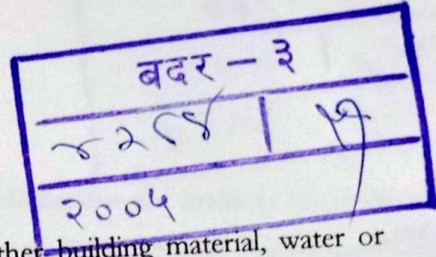 बदर – ३
४२८४
२००५
ther building material, water or